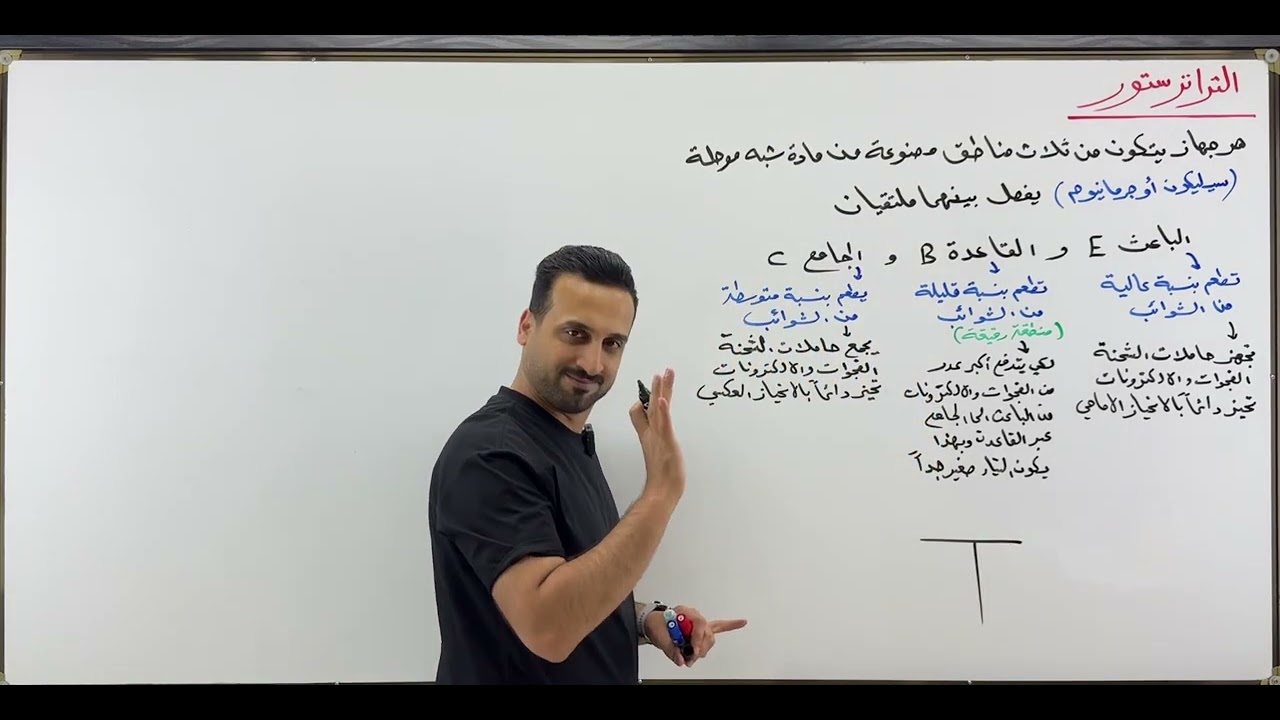 الترانزستور
هو جهاز يتكون من ثلاث مناطق مصنوعة من مادة شبه موصلة
(سيليكون أو جرمانيوم) يفصل بينهما ملتقيان
الباعث E و القاعدة B و الجامع C
تطعم بنسبة عالية
من الشوائب
تجهز حاملات الشحنة
الفجوات والالكترونات
تحيز دائماً بالانحياز الامامي
تطعم بنسبة قليلة
من الشوائب
(منطقة رقيقة)
لكي يتدفع أكبر عدد
من الفجوات والالكترونات
من الباعث الى الجامع
عبر القاعدة وبهذا
يكون التيار صغير جداً
يطعم بنسبة متوسطة
من الشوائب
يجمع حاملات الشحنة
الفجوات والالكترونات
تحيز دائماً بالانحياز العكسي